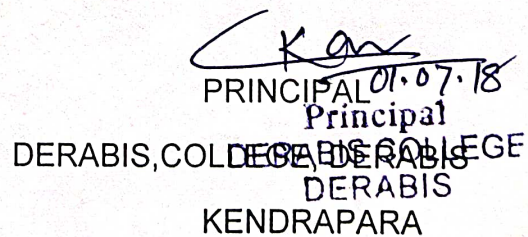 01.07.18
PRINCIPAL
Principal
DERABIS,COLLEGE, DERABIS
DERABIS COLLEGE
DERABIS
KENDRAPARA